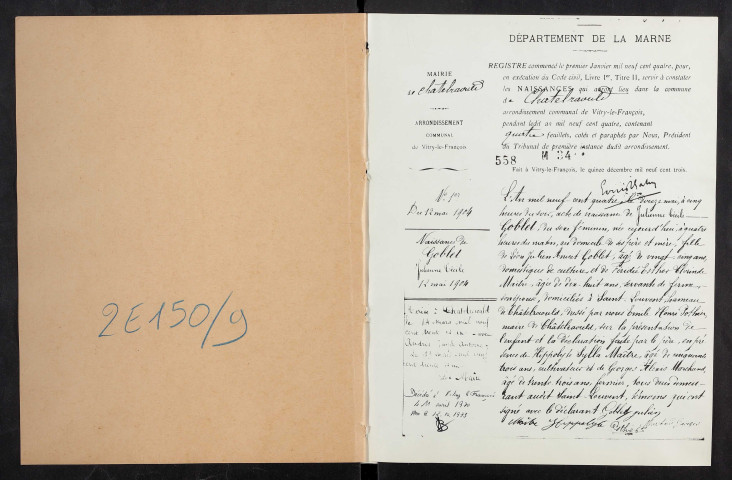 2E150/9
DÉPARTEMENT DE LA MARNE
MAIRIE
de Châtelraould
ARRONDISSEMENT
COMMUNAL
de Vitry-le-François
REGISTRE commencé le premier Janvier mil neuf cent quatre, pour,
en exécution du Code civil, Livre Ier, Titre II, servir à constater
les NAISSANCES qui auront lieu dans la commune
de Chatelraould
arrondissement communal de Vitry-le-François,
pendant ledit an mil neuf cent quatre, contenant
quatre feuillets, cotés et paraphés par Nous, Président
du Tribunal de première instance dudit arrondissement.
558 M 34
Fait à Vitry-le-François, le quinze décembre mil neuf cent trois.
Du 12 mai 1904
Naissance de
Goblet
Julienne
12 mai 1904
L'An mil neuf cent quatre, le douze mai, à cinq
heures du soir, acte de naissance de Julienne
Goblet, du sexe féminin, née aujourd'hui, à quatre
heures du matin, au domicile de ses père et mère, fille
de Léon Julien Goblet, âgé de vingt-cinq ans,
domestique de culture, et de Esther
Maitre, âgée de dix-huit ans, servante de ferme
domiciliés à Saint-Louvent, hameau
de Châtelraould, dressé par nous
maire de Châtelraould, sur la présentation de
l'enfant et la déclaration faite par le père, en pré-
sence de Hippolyte Sylla Maître, âgé de cinquante
trois ans, cultivateur et de Georges Marchand,
âgé de trente trois ans, fermier, tous deux demeu-
rant audit Saint-Louvent, témoins qui ont
signé avec le déclarant Goblet Julien
Maitre Hippolyte
Décédée à Vitry le François